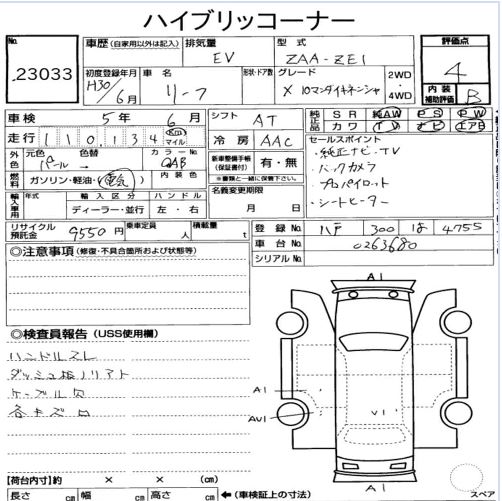 ハイブリッコーナー
No. 23033
車歴(自家用以外は記入) 排気量 EV 型式 ZAA-ZE1
評価点 4
内装補助評価 B
初度登録年月 H30/6月 車名 リーフ 形状・ドア数 グレード X 2WD・4WD
車検 5年 6月 シフト AT
純正品 SR 純AW PS PW
カワ TV ナビ エアB
走行 110134 Km マイル 冷房 AAC
セールスポイント
・純正ナビ・TV
・バックカメラ
・プロパイロット
・シートヒーター
外色 元色 パール 色替 → カラーNo. QAB
新車整備手帳(保証書付) 有・無
※書類と一緒に保管下さい。
燃料 ガソリン・軽油・(電気) 内装色
名義変更期限 月 日
輸入車用 年式 輸入区分 ハンドル
ディーラー・並行 左・右
リサイクル預託金 9550円 乗車定員 人 積載量 t
登録No. 八戸 300 は 4755
車台No. 0263680
シリアルNo.
◎注意事項(修復・不具合箇所および状態等)
A1
◎検査員報告(USS使用欄)
ハンドルスレ
ケーブル欠
A1
AU1
A1
【荷台内寸】約 × × (cm)
長さ cm 幅 cm 高さ cm ←(車検証上の寸法)
スペア